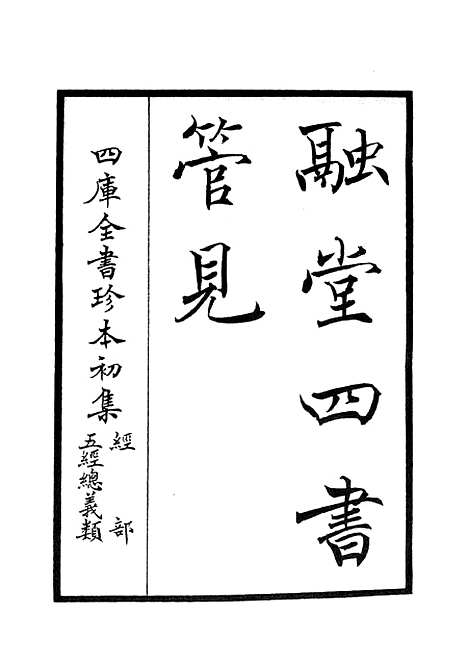 融堂四書
管見
四庫全書珍本初集
經部
五經總義類